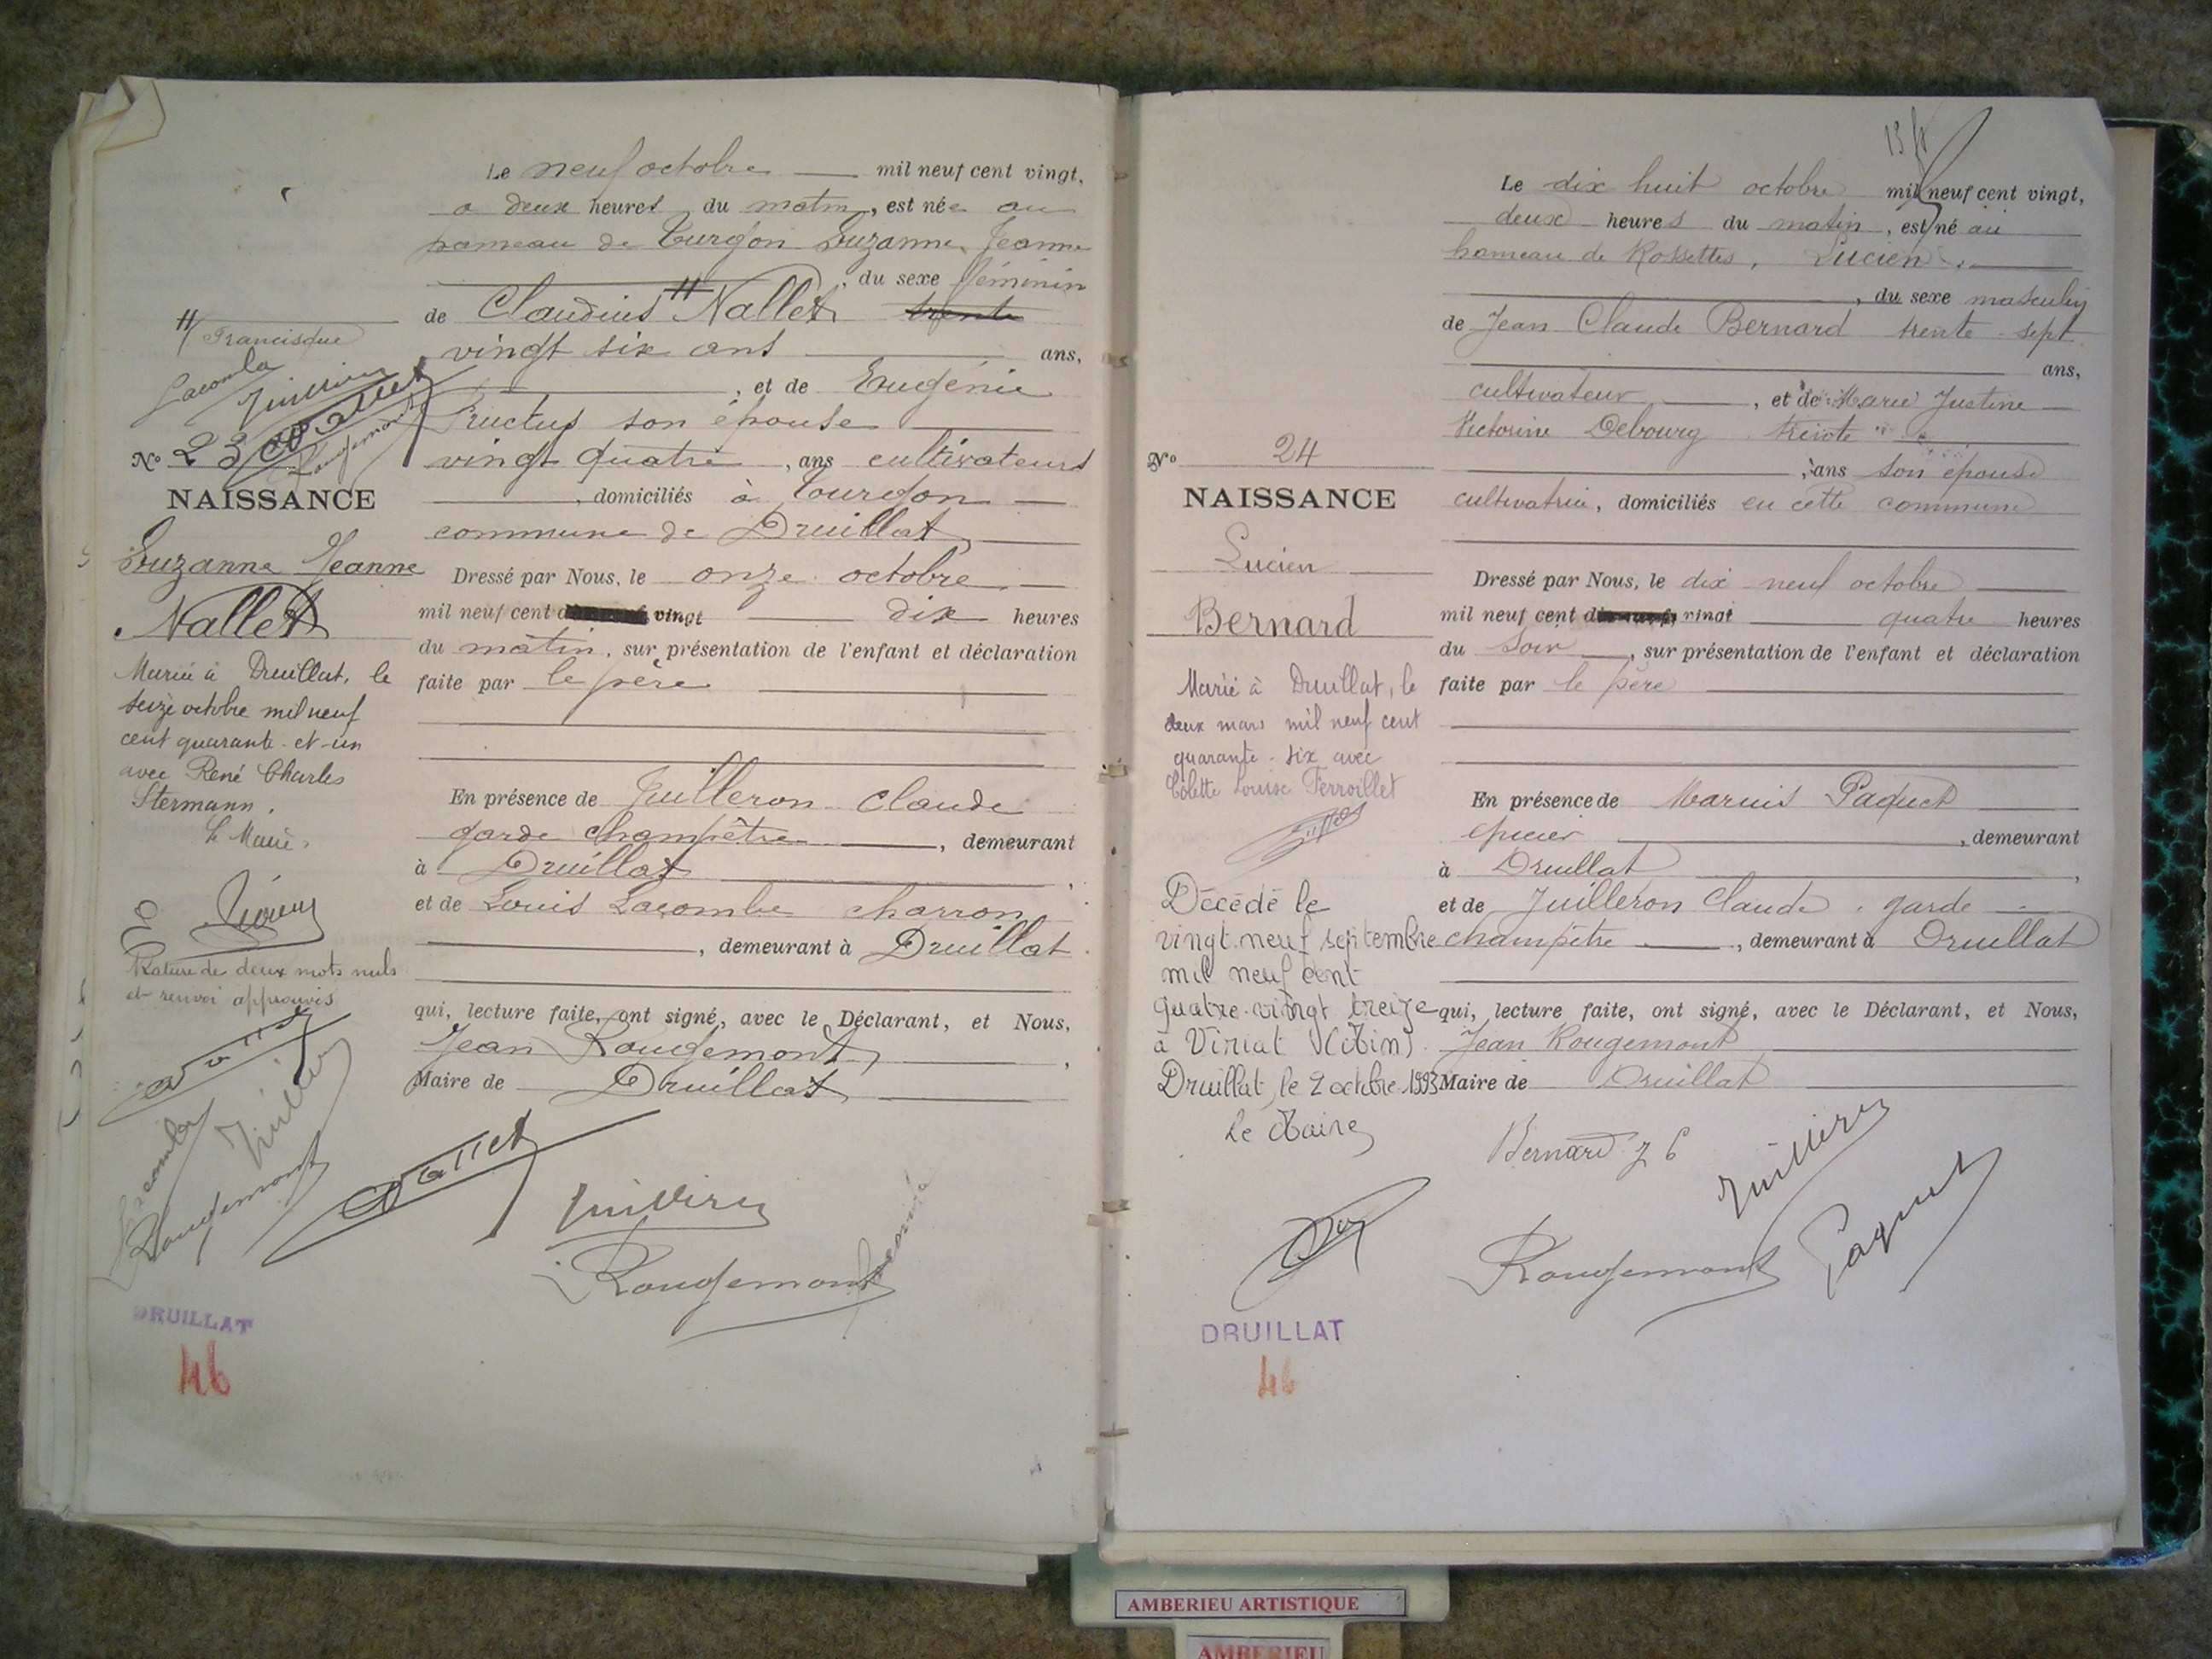 Le neuf octobre mil neuf cent vingt,
a deux heures du matin, est née au
hameau de Turgon Suzanne Jeanne
, du sexe féminin
de Claudius # Nallet trente
vingt six ans ans,
, et de Eugénie
son épouse
vingt quatre, ans cultivateurs
, domiciliés à Tourgon
commune de Druillat
Dressé par Nous, le onze octobre
mil neuf cent vingt dix heures
du matin, sur présentation de l'enfant et déclaration
faite par le père
En présence de Juilleron Claude
garde champêtre, demeurant
à Druillat,
et de Louis Lacombe charron
, demeurant à Druillat
qui, lecture faite, ont signé, avec le Déclarant, et Nous,
Jean Rougemont,
Maire de Druillat
Nallet
Rougemont
# Francisque
Lacombe
Nallet
Rougemont
No 23
NAISSANCE
Suzanne Jeanne
Nallet
Mariée à Druillat, le
seize octobre mil neuf
cent quarante-et-un
avec René Charles
Stermann.
Le Maire,
Rature de deux mots nuls
et renvoi approuvés
Nallet
Lacombe
Rougemont
DRUILLAT
46
Le dix huit octobre mil neuf cent vingt,
deux heures du matin, est né au
hameau de Rossettes, Lucien
, du sexe masculin
de Jean Claude Bernard trente-sept
ans,
cultivateur, et de Marie Justine
Victorine Debourg trente
, ans son épouse
cultivatrice, domiciliés en cette commune
Dressé par Nous, le dix neuf octobre
mil neuf cent vingt quatre heures
du soir, sur présentation de l'enfant et déclaration
faite par le père
En présence de Marius Paquet
épicier, demeurant
à Druillat,
et de Juilleron Claude, garde
champêtre, demeurant à Druillat
qui, lecture faite, ont signé, avec le Déclarant, et Nous,
Jean Rougemont
Maire de Druillat
Bernard J C
Rougemont
Paquet
No 24
NAISSANCE
Lucien
Bernard
Marié à Druillat, le
deux mars mil neuf cent
quarante-six avec
Colette Louise Ferroillet
Décédé le
vingt-neuf septembre
mil neuf cent
quatre-vingt treize
à Viriat (Ain)
Druillat, le 2 octobre 1993
Le Maire,
DRUILLAT
46
AMBERIEU ARTISTIQUE
AMBERIEU